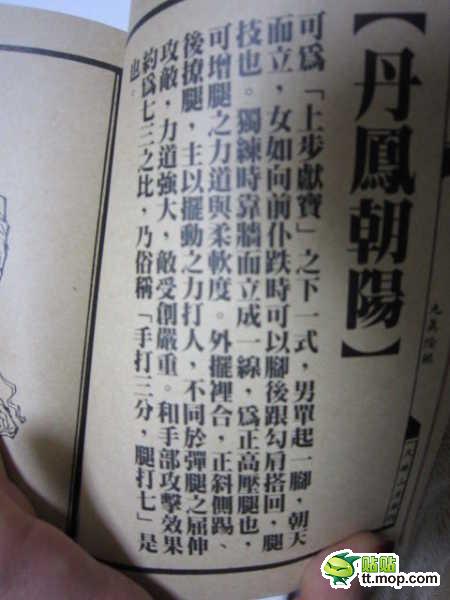 【丹鳳朝陽】
可爲「上步獻寶」之下一式，男單起一腳，朝天
而立，女如向前仆跌時可以腳後跟勾肩搭回，腿
技也。獨練時靠牆而立成一線，爲正高壓腿也，
可增腿之力道與柔軟度。外擺裡合，正斜側踢、
後撩腿，主以擺動之力打人，不同於彈腿之屈伸
攻敵，力道強大，敵受創嚴重。和手部攻擊效果
約爲七三之比，乃俗稱「手打三分，腿打七」是
也。
貼貼
tt.mop.com